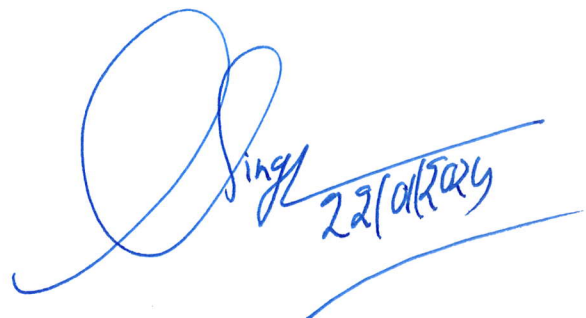 Singh
22/01/2024